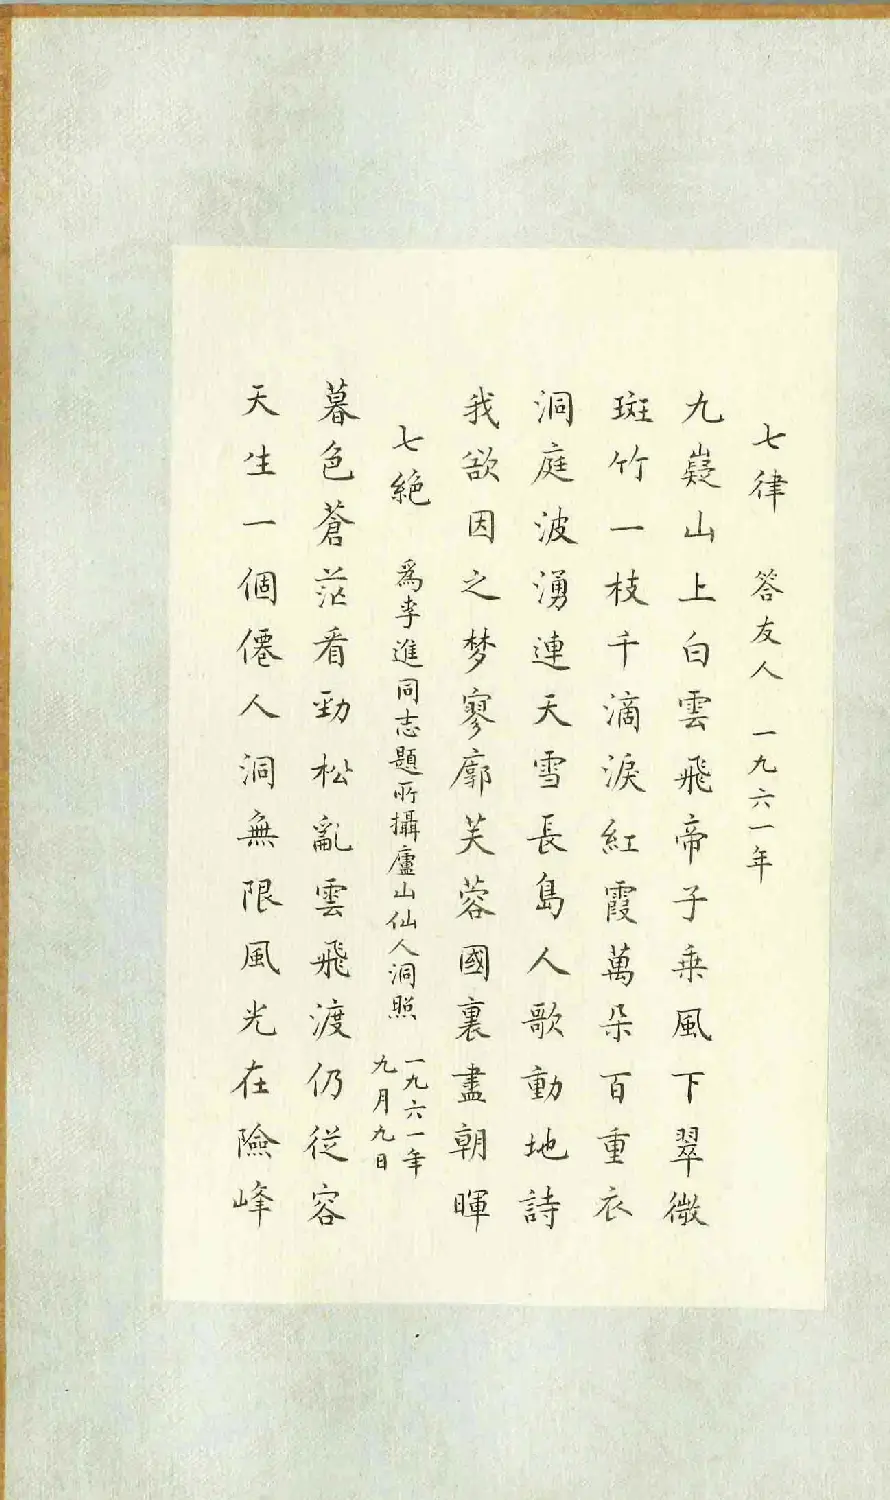 七律 答友人 一九六一年
九嶷山上白雲飛帝子乘風下翠微
斑竹一枝千滴淚紅霞萬朵百重衣
洞庭波湧連天雪長島人歌動地詩
我欲因之梦寥廓芙蓉國裏盡朝暉
七絕 為李進同志題所攝廬山仙人洞照 一九六一年
九月九日
暮色蒼茫看勁松亂雲飛渡仍從容
天生一個僊人洞無限風光在險峰